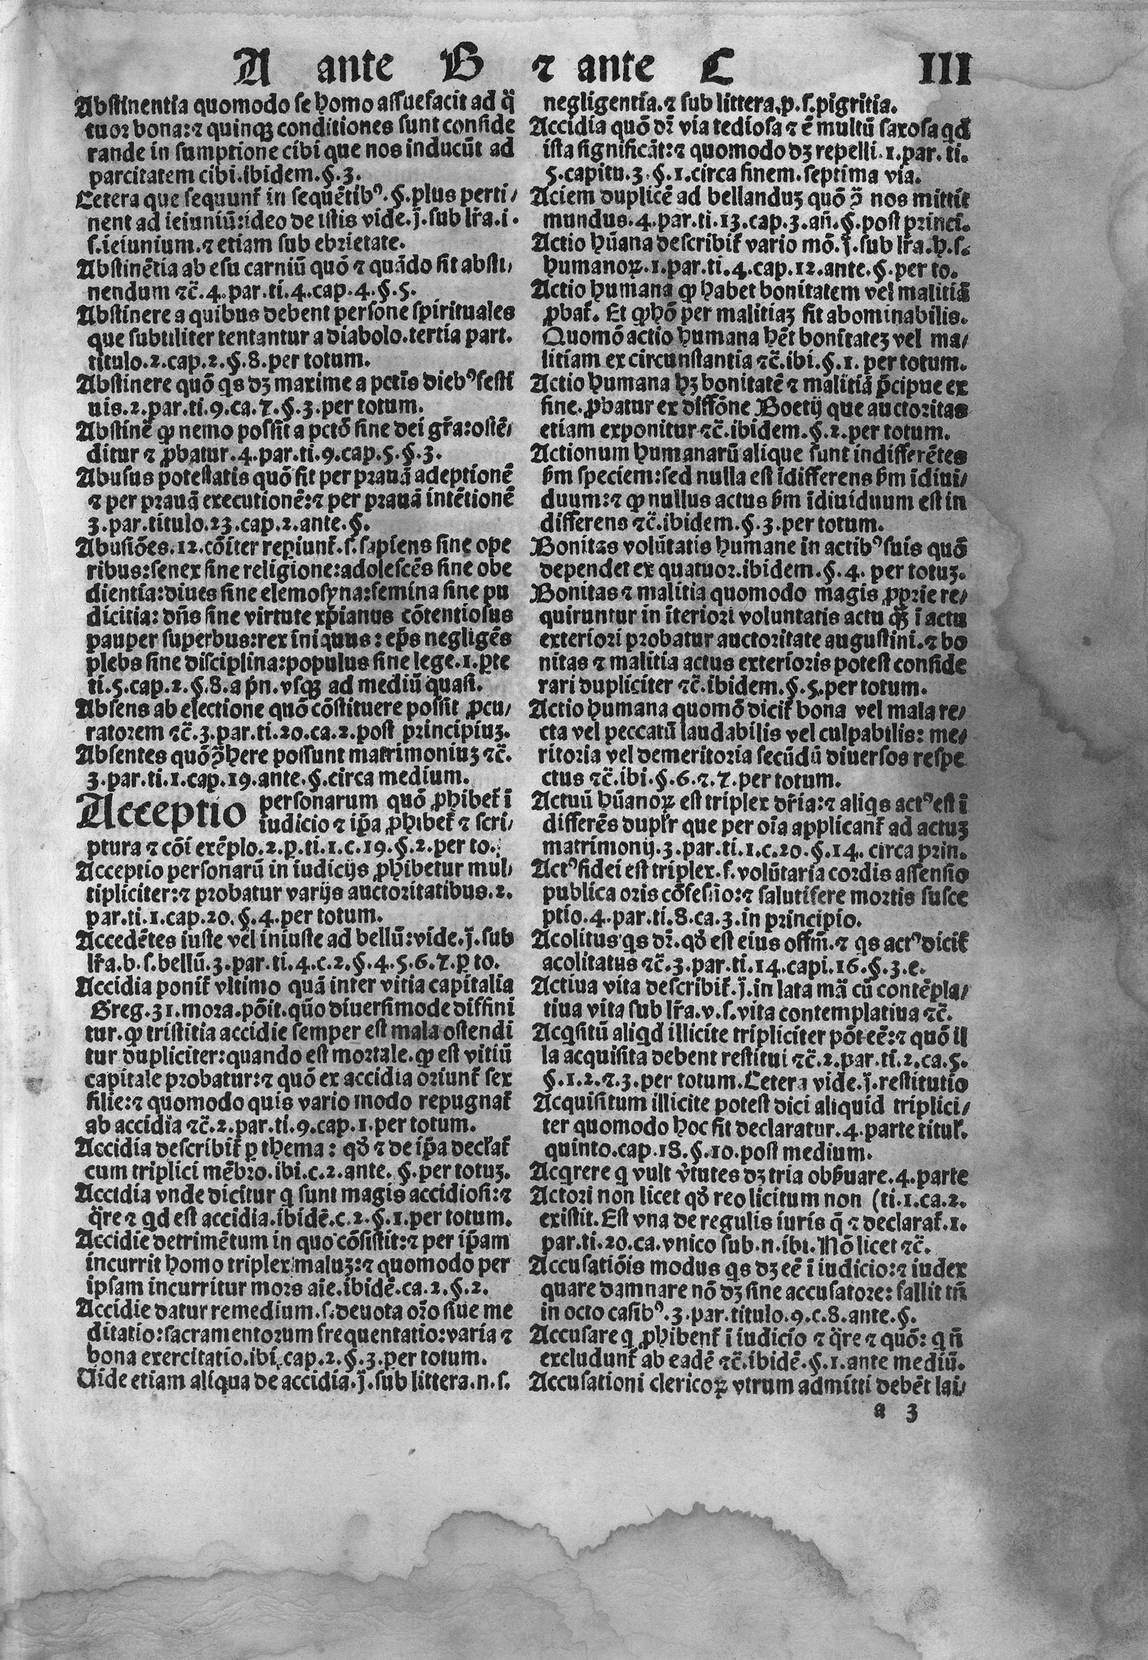 A ante B ⁊ ante C III
Abstinentia quomodo se homo assuefacit ad q̄
tuor bona:⁊ quinqꝫ conditiones sunt conside
rande in sumptione cibi que nos inducūt ad
parcitatem cibi.ibidem.§.3.
Cetera que sequunt᷑ in sequētibꝰ.§.plus perti/
nent ad ieiuniū:ideo de istis vide.j̄.sub lr̄a.i.
s.ieiunium.⁊ etiam sub ebrietate.
Abstinētia ab esu carniū quō ⁊ quādo sit absti/
nendum ⁊c̄.4.par.ti.4.cap.4.§.5.
Abstinere a quibus debent persone spirituales
que subtiliter tentantur a diabolo.tertia part.
titulo.2.cap.2.§.8.per totum.
Abstinere quō qs dꝫ maxime a pctīs diebꝰ festi
uis.2.par.ti.9.ca.7.§.3.per totum.
Abstinē ꝙ nemo possit a pctō sine dei gr̄a:ostē/
ditur ⁊ ꝓbatur.4.par.ti.9.cap.5.§.3.
Abusus potestatis quō fit per prauā adeptionē
⁊ per prauā executionē:⁊ per prauā intētionē
3.par.titulo.23.cap.2.ante.§.
Abusiōes.12.cōiter reperiunt᷑.s.sapiens sine ope
ribus:senex sine religione:adolescēs sine obe
dientia:diues sine elemosyna:femina sine pu
dicitia: dn̄s sine virtute xp̄ianus cōtentiosus
pauper superbus:rex iniquus: ep̄s negligēs
plebs sine disciplina:populus sine lege.1.ꝑte
ti.5.cap.2.§.8.a pn̄.vsqꝫ ad mediū quasi.
Absens ab electione quō cōstituere possit ꝓcu/
ratorem ⁊c̄.3.par.ti.20.ca.2.post principiuꝫ.
Absentes quō ꝯ̄here possunt matrimoniuꝫ ⁊c̄.
3.par.ti.1.cap.19.ante.§.circa medium.
Acceptio personarum quō ꝓhibet᷑ ī
iudicio ⁊ ip̄a ꝓhibet᷑ ⁊ scri/
ptura ⁊ cōi exēplo.2.p.ti.1.c.19.§.2.per to.
Acceptio personarū in iudicijs ꝓhibetur mul/
tipliciter:⁊ probatur varijs auctoritatibus.2.
par.ti.1.cap.20.§.4.per totum.
Accedētes iuste vel iniuste ad bellū:vide.j̄.sub
lr̄a.b.s.bellū.3.par.ti.4.c.2.§.4.5.6.7.ꝑ to.
Accidia ponit᷑ vltimo quā inter vitia capitalia
Greg.31.mora.pōit.quō diuersimode diffini
tur.ꝙ tristitia accidie semper est mala ostendi
tur dupliciter:quando est mortale.ꝙ est vitiū
capitale probatur:⁊ quō ex accidia oriunt᷑ sex
filie:⁊ quomodo quis vario modo repugnat᷑
ab accidia ⁊c̄.2.par.ti.9.cap.1.per totum.
Accidia describit᷑ ꝑ thema: qꝺ̄ ⁊ de ip̄a declat᷑
cum triplici mēbro.ibi.c.2.ante.§.per totuꝫ.
Accidia vnde dicitur q̄ sunt magis accidiosi:⁊
q̄re ⁊ qd est accidia.ibidē.c.2.§.1.per totum.
Accidie detrimētum in quo cōsistit:⁊ per ip̄am
incurrit homo triplex maluꝫ:⁊ quomodo per
ipsam incurritur mors aīe.ibidē.ca.2.§.2.
Accidie datur remedium.s.deuota or̄o siue me
ditatio:sacramentorum frequentatio:varia ⁊
bona exercitatio.ibi.cap.2.§.3.per totum.
Uide etiam aliqua de accidia.j̄.sub littera.n.s.
negligentia.⁊ sub littera.p.s.pigritia.
Accidia quō dr̄ via tediosa ⁊ ē multū saxosa qd
ista significāt:⁊ quomodo dꝫ repelli.1.par.ti.
5.capitu.3.§.1.circa finem.septima via.
Aciem duplicē ad bellanduꝫ quō ꝯ̄ nos mittit
mundus.4.par.ti.13.cap.3.an̄.§.post princi.
Actio hūana describit᷑ vario mō.j̄.sub lr̄a.h.s.
humanoꝝ.1.par.ti.4.cap.12.ante.§.per to.
Actio humana ꝙ habet bonitatem vel malitiā
ꝓbat᷑. Et ꝙ hō per malitiaꝫ fit abominabilis.
Quomō actio humana hēt bonitateꝫ vel ma/
litiam ex circunstantia ⁊c̄.ibi.§.1. per totum.
Actio humana hꝫ bonitatē ⁊ malitiā p̄cipue ex
fine.ꝓbatur ex diffōne Boetij que auctoritas
etiam exponitur ⁊c̄.ibidem.§.2.per totum.
Actionum humanarū alique sunt indifferētes
ẜm speciem:sed nulla est īdifferens ẜm īdiui/
duum:⁊ ꝙ nullus actus ẜm īdiuiduum est in
differens ⁊c̄.ibidem.§.3.per totum.
Bonitas volūtatis humane in actibꝰ suis quō
dependet ex quatuor.ibidem.§.4. per totuꝫ.
Bonitas ⁊ malitia quomodo magis ꝓprie re/
quiruntur in īteriori voluntatis actu qꝫ̄ ī actu
exteriori probatur auctoritate augustini.⁊ bo
nitas ⁊ malitia actus exterioris potest conside
rari dupliciter ⁊c̄.ibidem.§.5.per totum.
Actio humana quomō dicit᷑ bona vel mala re/
cta vel peccatū laudabilis vel culpabilis: me/
ritoria vel demeritoria secūdū diuersos respe
ctus ⁊c̄.ibi.§.6.⁊.7.per totum.
Actuū hūanoꝝ est triplex dr̄ia:⁊ aliqs actꝰ est ī
differēs duplr̄ que per oīa applicant᷑ ad actuꝫ
matrimonij.3.par.ti.1.c.20.§.14. circa prin.
Actꝰ fidei est triplex.s.volūtaria cordis assensio
publica oris cōfessio:⁊ salutifere mortis susce
ptio.4.par.ti.8.ca.3.in principio.
Acolitus qs dr̄.qꝺ̄ est eius offm̄.⁊ qs actꝰ dicit᷑
acolitatus ⁊c̄.3.par.ti.14.capi.16.§.3.e.
Actiua vita describit᷑.j̄.in lata mā cū contēpla/
tiua vita sub lr̄a.v.s.vita contemplatiua ⁊c̄.
Acqsitū aliqd illicite tripliciter pōt eē:⁊ quō il
la acquisita debent restitui ⁊c̄.2.par.ti.2.ca.5.
§.1.2.⁊.3.per totum.Cetera vide.j̄.restitutio
Acquisitum illicite potest dici aliquid triplici/
ter quomodo hoc fit declaratur.4.parte titul᷑.
quinto.cap.18.§.10.post medium.
Acqrere q̄ vult v̓tutes dꝫ tria obẜuare.4.parte
Actori non licet qꝺ̄ reo licitum non (ti.1.ca.2.
existit.Est vna de regulis iuris q̄ ⁊ declarat᷑.1.
par.ti.20.ca.vnico sub.n.ibi.Nō licet ⁊c̄.
Accusatiōis modus qs dꝫ eē ī iudicio:⁊ iudex
quare damnare nō dꝫ sine accusatore:fallit tn̄
in octo casibꝰ.3.par.titulo.9.c.8.ante.§.
Accusare q̄ ꝓhibent᷑ ī iudicio ⁊ q̄re ⁊ quō: q̄ n̄
excludunt᷑ ab eadē ⁊c̄.ibidē.§.1.ante mediū.
Accusationi clericoꝝ vtrum admitti debēt lai/
a 3